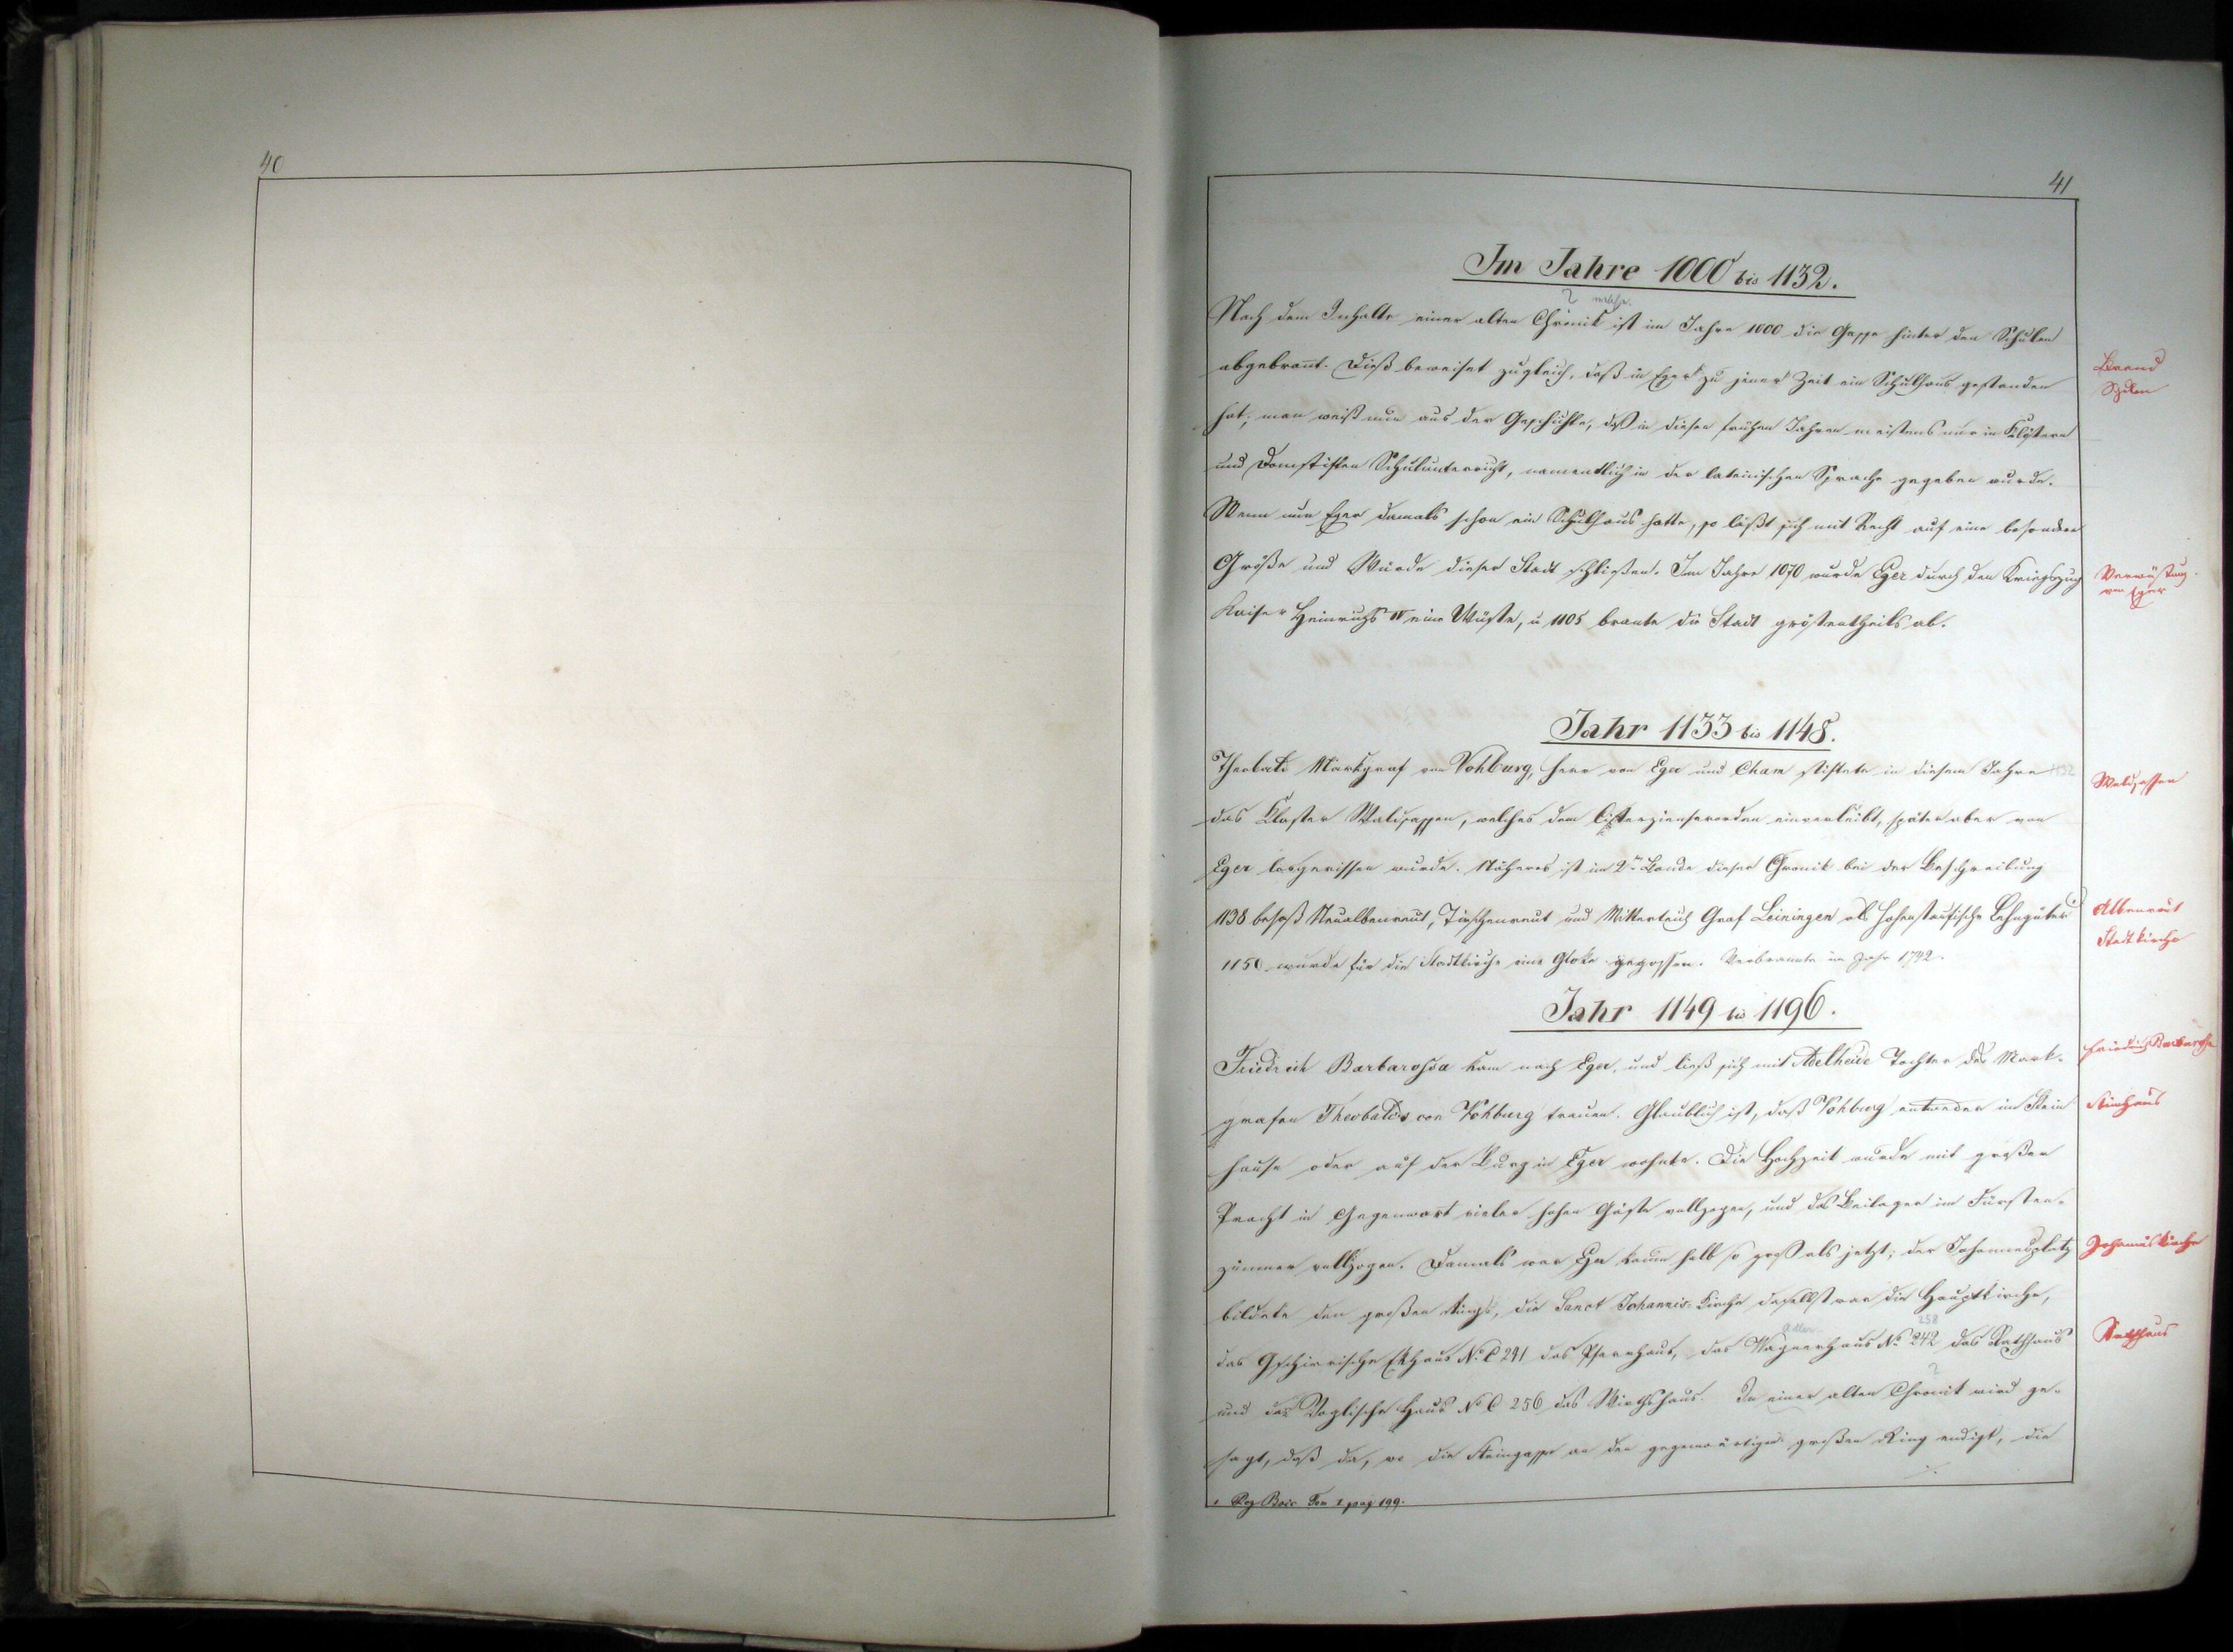 40
41
Im Jahre 1000 bis 1132.
? welche.
Nach dem Inhalte einer alten Chronik ist im Jahre 1000 die Gasse hinter den Schulen
abgebrant. Dieß beweiset zugleich, daß in Eger zu jener Zeit ein Schulhaus gestanden
hat; man weiß nun aus der Geschichte, daß in diesen frühen Jahren meistens nur in Klöstern
und Domstiften Schulunterricht, namentlich in der lateinischen Sprache gegeben wurde.
Wenn nun Eger damals schon ein Schulhaus hatte, so läßt sich mit Recht auf eine besondere
Größe und Würde dieser Stadt schließen. Im Jahre 1070 wurde Eger durch den Kriegszug
Kaiser Heinrichs IV eine Wüste, u 1105 brante die Stadt gröstentheils ab.
Brand
Schulen
Verwüstung
von Eger
Jahr 1133 bis 1148.
Theobald Markgraf von Vohburg, Herr von Eger und Cham stiftete in diesem Jahre 1132
das Kloster Waldsassen, welches dem Cisterzienserorden einverleibt, später aber von
Eger losgerissen wurde. Näheres ist im 2ten Bande dieser Chronik bei der Beschreibung
1138 besaß Neualbenreut, Tirschenreut und Mitterteich Graf Leiningen als hohenstaufische Lehngüter
1150 wurde für die Stadtkirche eine Gloke gegossen. Verbrannte im Jahr 1742.
Waldsassen
Albenreut
Stadtkirche
Jahr 1149 bis 1196.
Friedrich Barbarossa kam nach Eger, und ließ sich mit Adelheid Tochter des Mark-
grafen Theobalds von Vohburg trauen. Glaublich ist, daß Vohburg entweder im Stein
hause oder auf der Burg in Eger wohnte. Die Hochzeit wurde mit großer
Pracht in Gegenwart vieler hohen Gäste vollzogen, und das Beilager im Fürsten-
zimmer vollzogen. Damals war Eger kaum halb so groß als jetzt; der Johannesplatz
bildete den großen Ring, die Sanct Johannis-Kirche daselbst war die Hauptkirche,
Adler 258
das Eckhaus No C 241 das Pfarrhaus, das Wagnerhaus No 242 das Rathhaus
und das Voglische Haus No C 256 das Wirthshaus. In einer alten Chronik wird ge-
sagt, daß da, wo die Steingasse an den gegenwärtigen großen Ring endigt, die
Friedrich Barbarossa
Steinhaus
Johanniskirche
Rathhaus
Reg Boic Tom I pag 199.